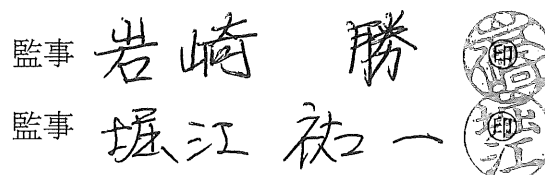 監事 岩崎 勝 ㊞
監事 堀江 祐一 ㊞